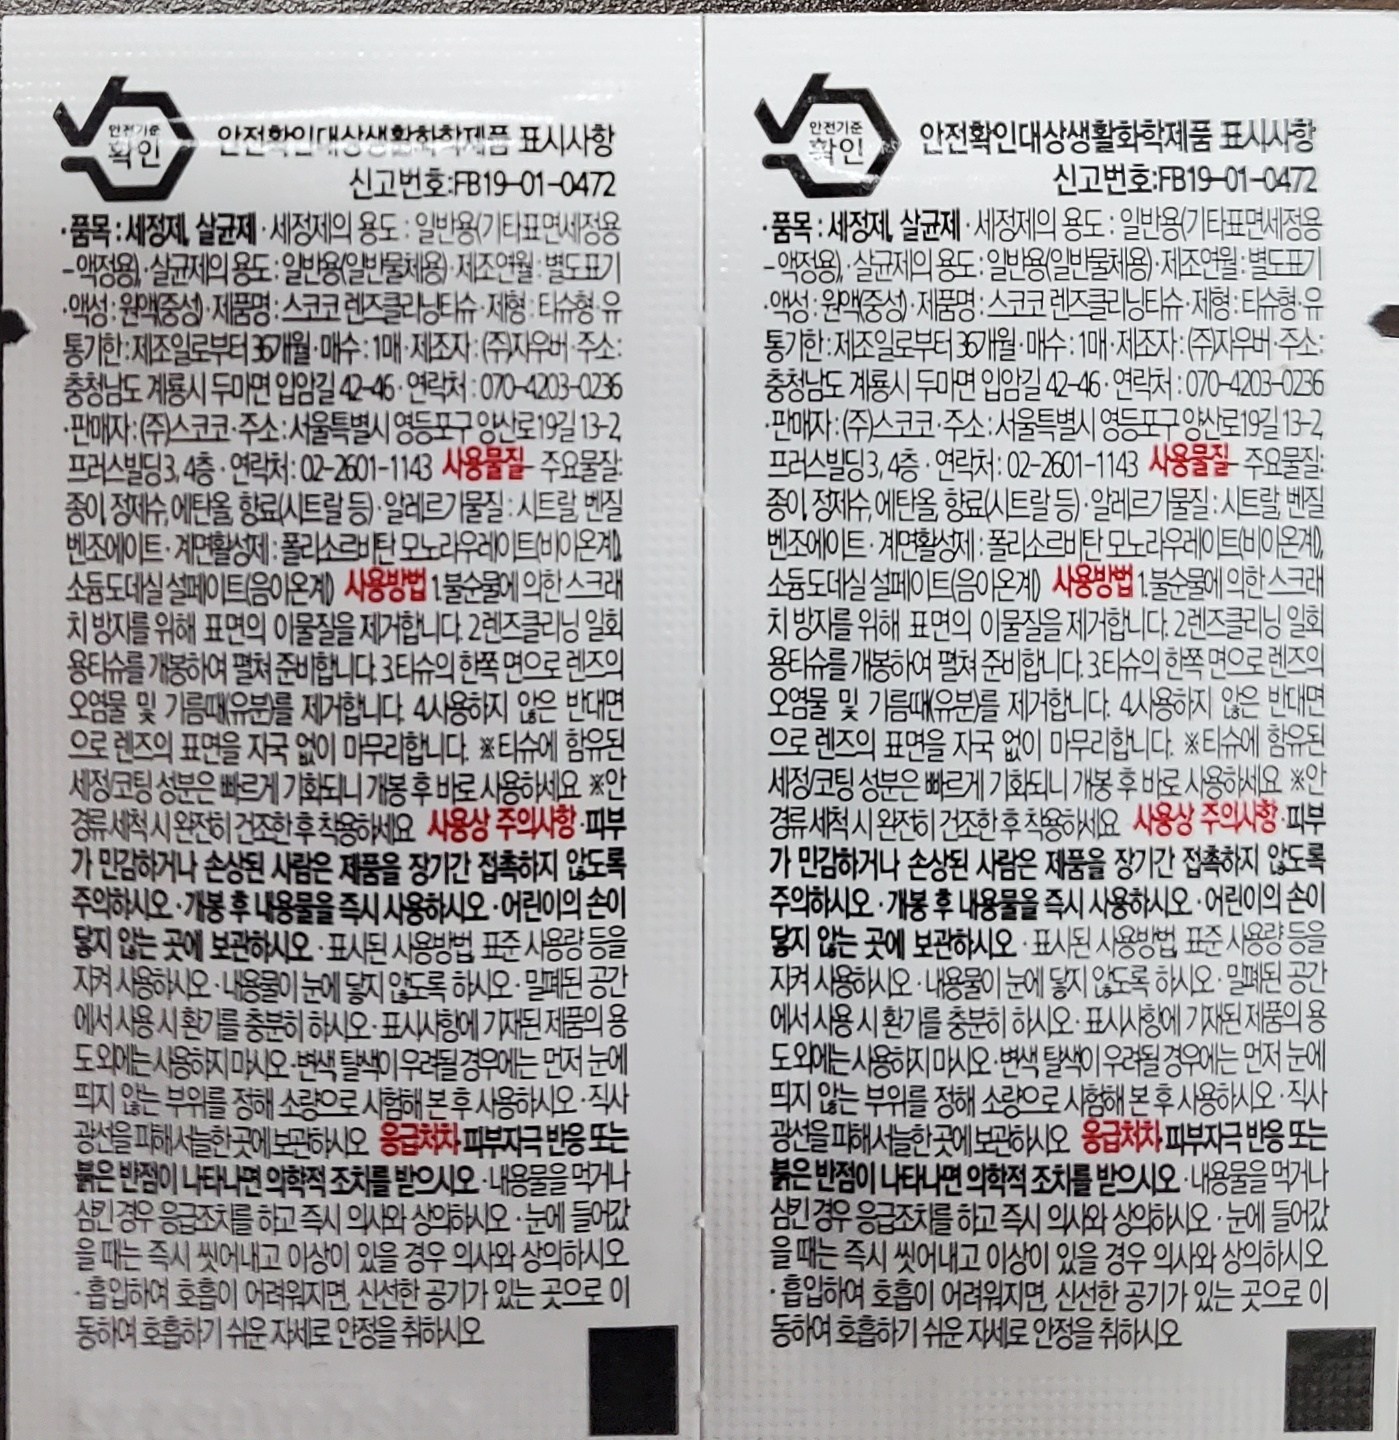 안전기준
확인
안전확인대상생활화학제품 표시사항
신고번호:FB19-01-0472
·품목 : 세정제, 살균제 · 세정제의 용도 : 일반용(기타표면세정용
-액정용), ·살균제의 용도 : 일반용(일반물체용) · 제조연월 : 별도표기
·액성 : 원액(중성) · 제품명 : 스코코 렌즈클리닝티슈 · 제형 : 티슈형 · 유
통기한 : 제조일로부터 36개월 · 매수 : 1매 · 제조자 : (주)자우버 · 주소 :
충청남도 계룡시 두마면 입암길 42-46 · 연락처 : 070-4203-0236
·판매자 : (주)스코코 · 주소 : 서울특별시 영등포구 양산로19길 13-2,
프러스빌딩 3, 4층 · 연락처 : 02-2601-1143 사용물질 - 주요물질:
종이, 정제수, 에탄올, 향료(시트랄 등) · 알레르기물질 : 시트랄, 벤질
벤조에이트 · 계면활성제 : 폴리소르비탄 모노라우레이트(비이온계),
소듐도데실 설페이트(음이온계) 사용방법 1.불순물에 의한 스크래
치 방지를 위해 표면의 이물질을 제거합니다. 2.렌즈클리닝 일회
용티슈를 개봉하여 펼쳐 준비합니다. 3.티슈의 한쪽 면으로 렌즈의
오염물 및 기름때(유분)를 제거합니다. 4.사용하지 않은 반대면
으로 렌즈의 표면을 자국 없이 마무리합니다. ※티슈에 함유된
세정/코팅 성분은 빠르게 기화되니 개봉 후 바로 사용하세요 ※안
경류 세척 시 완전히 건조한 후 착용하세요 사용상 주의사항 · 피부
가 민감하거나 손상된 사람은 제품을 장기간 접촉하지 않도록
주의하시오 · 개봉 후 내용물을 즉시 사용하시오 · 어린이의 손이
닿지 않는 곳에 보관하시오 · 표시된 사용방법, 표준 사용량 등을
지켜 사용하시오 · 내용물이 눈에 닿지 않도록 하시오 · 밀폐된 공간
에서 사용 시 환기를 충분히 하시오 · 표시사항에 기재된 제품의 용
도 외에는 사용하지 마시오 · 변색 탈색이 우려될 경우에는 먼저 눈에
띄지 않는 부위를 정해 소량으로 시험해 본 후 사용하시오 · 직사
광선을 피해 서늘한 곳에 보관하시오 응급처치 · 피부자극 반응 또는
붉은 반점이 나타나면 의학적 조치를 받으시오 · 내용물을 먹거나
삼킨 경우 응급조치를 하고 즉시 의사와 상의하시오 · 눈에 들어갔
을 때는 즉시 씻어내고 이상이 있을 경우 의사와 상의하시오
· 흡입하여 호흡이 어려워지면, 신선한 공기가 있는 곳으로 이
동하여 호흡하기 쉬운 자세로 안정을 취하시오
안전기준
확인
안전확인대상생활화학제품 표시사항
신고번호:FB19-01-0472
·품목 : 세정제, 살균제 · 세정제의 용도 : 일반용(기타표면세정용
-액정용), ·살균제의 용도 : 일반용(일반물체용) · 제조연월 : 별도표기
·액성 : 원액(중성) · 제품명 : 스코코 렌즈클리닝티슈 · 제형 : 티슈형 · 유
통기한 : 제조일로부터 36개월 · 매수 : 1매 · 제조자 : (주)자우버 · 주소 :
충청남도 계룡시 두마면 입암길 42-46 · 연락처 : 070-4203-0236
·판매자 : (주)스코코 · 주소 : 서울특별시 영등포구 양산로19길 13-2,
프러스빌딩 3, 4층 · 연락처 : 02-2601-1143 사용물질 - 주요물질:
종이, 정제수, 에탄올, 향료(시트랄 등) · 알레르기물질 : 시트랄, 벤질
벤조에이트 · 계면활성제 : 폴리소르비탄 모노라우레이트(비이온계),
소듐도데실 설페이트(음이온계) 사용방법 1.불순물에 의한 스크래
치 방지를 위해 표면의 이물질을 제거합니다. 2.렌즈클리닝 일회
용티슈를 개봉하여 펼쳐 준비합니다. 3.티슈의 한쪽 면으로 렌즈의
오염물 및 기름때(유분)를 제거합니다. 4.사용하지 않은 반대면
으로 렌즈의 표면을 자국 없이 마무리합니다. ※티슈에 함유된
세정/코팅 성분은 빠르게 기화되니 개봉 후 바로 사용하세요 ※안
경류 세척 시 완전히 건조한 후 착용하세요 사용상 주의사항 · 피부
가 민감하거나 손상된 사람은 제품을 장기간 접촉하지 않도록
주의하시오 · 개봉 후 내용물을 즉시 사용하시오 · 어린이의 손이
닿지 않는 곳에 보관하시오 · 표시된 사용방법, 표준 사용량 등을
지켜 사용하시오 · 내용물이 눈에 닿지 않도록 하시오 · 밀폐된 공간
에서 사용 시 환기를 충분히 하시오 · 표시사항에 기재된 제품의 용
도 외에는 사용하지 마시오 · 변색 탈색이 우려될 경우에는 먼저 눈에
띄지 않는 부위를 정해 소량으로 시험해 본 후 사용하시오 · 직사
광선을 피해 서늘한 곳에 보관하시오 응급처치 · 피부자극 반응 또는
붉은 반점이 나타나면 의학적 조치를 받으시오 · 내용물을 먹거나
삼킨 경우 응급조치를 하고 즉시 의사와 상의하시오 · 눈에 들어갔
을 때는 즉시 씻어내고 이상이 있을 경우 의사와 상의하시오
· 흡입하여 호흡이 어려워지면, 신선한 공기가 있는 곳으로 이
동하여 호흡하기 쉬운 자세로 안정을 취하시오